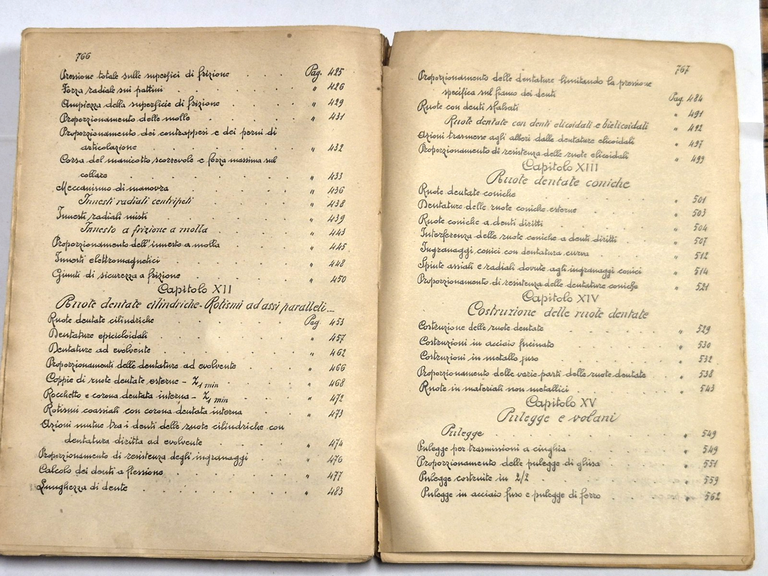 766
Pressione totale sulle superfici di frizione . . . . Pag. 425
Forza radiale sui pattini . . . . " 426
Ampiezza della superficie di frizione . . . . " 429
Proporzionamento delle molle . . . . " 431
Proporzionamento dei contrappesi e dei perni di
articolazione . . . . " 432
Corsa del manicotto scorrevole e forza massima sul
collare . . . . " 433
Meccanismo di manovra . . . . " 436
Innesti radiali centripeti . . . . " 438
Innesti radiali misti . . . . " 439
Innesto a frizione a molla . . . . " 443
Proporzionamento dell'innesto a molla . . . . " 445
Innesti elettromagnetici . . . . " 448
Giunti di sicurezza a frizione . . . . " 450
Capitolo XII
Ruote dentate cilindriche - Rotismi ad assi paralleli...
Ruote dentate cilindriche . . . . Pag. 453
Dentature epicicloidali . . . . " 457
Dentature ad evolvente . . . . " 462
Proporzionamenti delle dentature ad evolvente . . . . " 466
Coppie di ruote dentate esterne - Z1 min . . . . " 468
Rocchetto e corona dentata interna - Z1 min . . . . " 472
Rotismi coassiali con corona dentata interna . . . . " 473
Azioni mutue tra i denti delle ruote cilindriche con
dentatura diritta ad evolvente . . . . " 474
Proporzionamento di resistenza degli ingranaggi . . . . " 476
Calcolo dei denti a flessione . . . . " 477
Lunghezza di dente . . . . " 483
767
Proporzionamento delle dentature limitando la pressione
specifica sul fianco dei denti . . . . Pag. 484
Ruote con denti sfalsati . . . . " 491
Ruote dentate con denti elicoidali e bielicoidali " 492
Azioni trasmesse agli alberi dalle dentature elicoidali . . . . " 497
Proporzionamento di resistenza delle ruote elicoidali . . . . " 499
Capitolo XIII
Ruote dentate coniche
Ruote dentate coniche . . . . " 501
Dentature delle ruote coniche esterne . . . . " 503
Ruote coniche a denti diritti . . . . " 504
Interferenza delle ruote coniche a denti diritti . . . . " 507
Ingranaggi conici con dentatura curva . . . . " 512
Spinte assiali e radiali dovute agli ingranaggi conici . . . . " 514
Proporzionamento di resistenza delle dentature coniche . . . . " 521
Capitolo XIV
Costruzione delle ruote dentate
Costruzione delle ruote dentate . . . . " 529
Costruzioni in acciaio fucinato . . . . " 530
Costruzioni in metallo fuso . . . . " 532
Proporzionamento delle varie parti delle ruote dentate . . . . " 538
Ruote in materiali non metallici . . . . " 543
Capitolo XV
Pulegge e volani
Pulegge . . . . " 549
Pulegge per trasmissioni a cinghia . . . . " 549
Proporzionamento delle pulegge di ghisa . . . . " 551
Pulegge costruite in 2/2 . . . . " 559
Pulegge in acciaio fuso e pulegge di ferro . . . . " 562